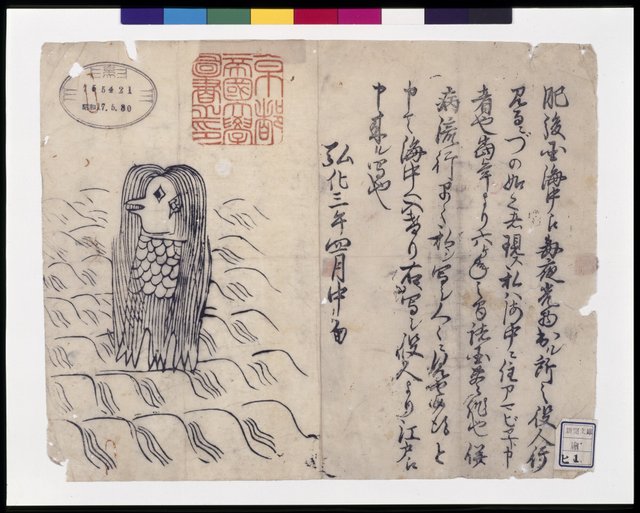 肥後国海中え毎夜光物出ル所之役人行
見るニづの如く者現ス私ハ海中ニ住アマビヱト申
者也当年より六ヶ年之間諸国豊作也併
病流行早々私ヲ写シ人々ニ見せ候得と
申て海中へ入けり右写シ役人より江戸え
申来ル写也
弘化三年四月中旬
京都
帝國大學
圖書之印
165421
昭和17.5.30
新聞文庫
ヒ 1